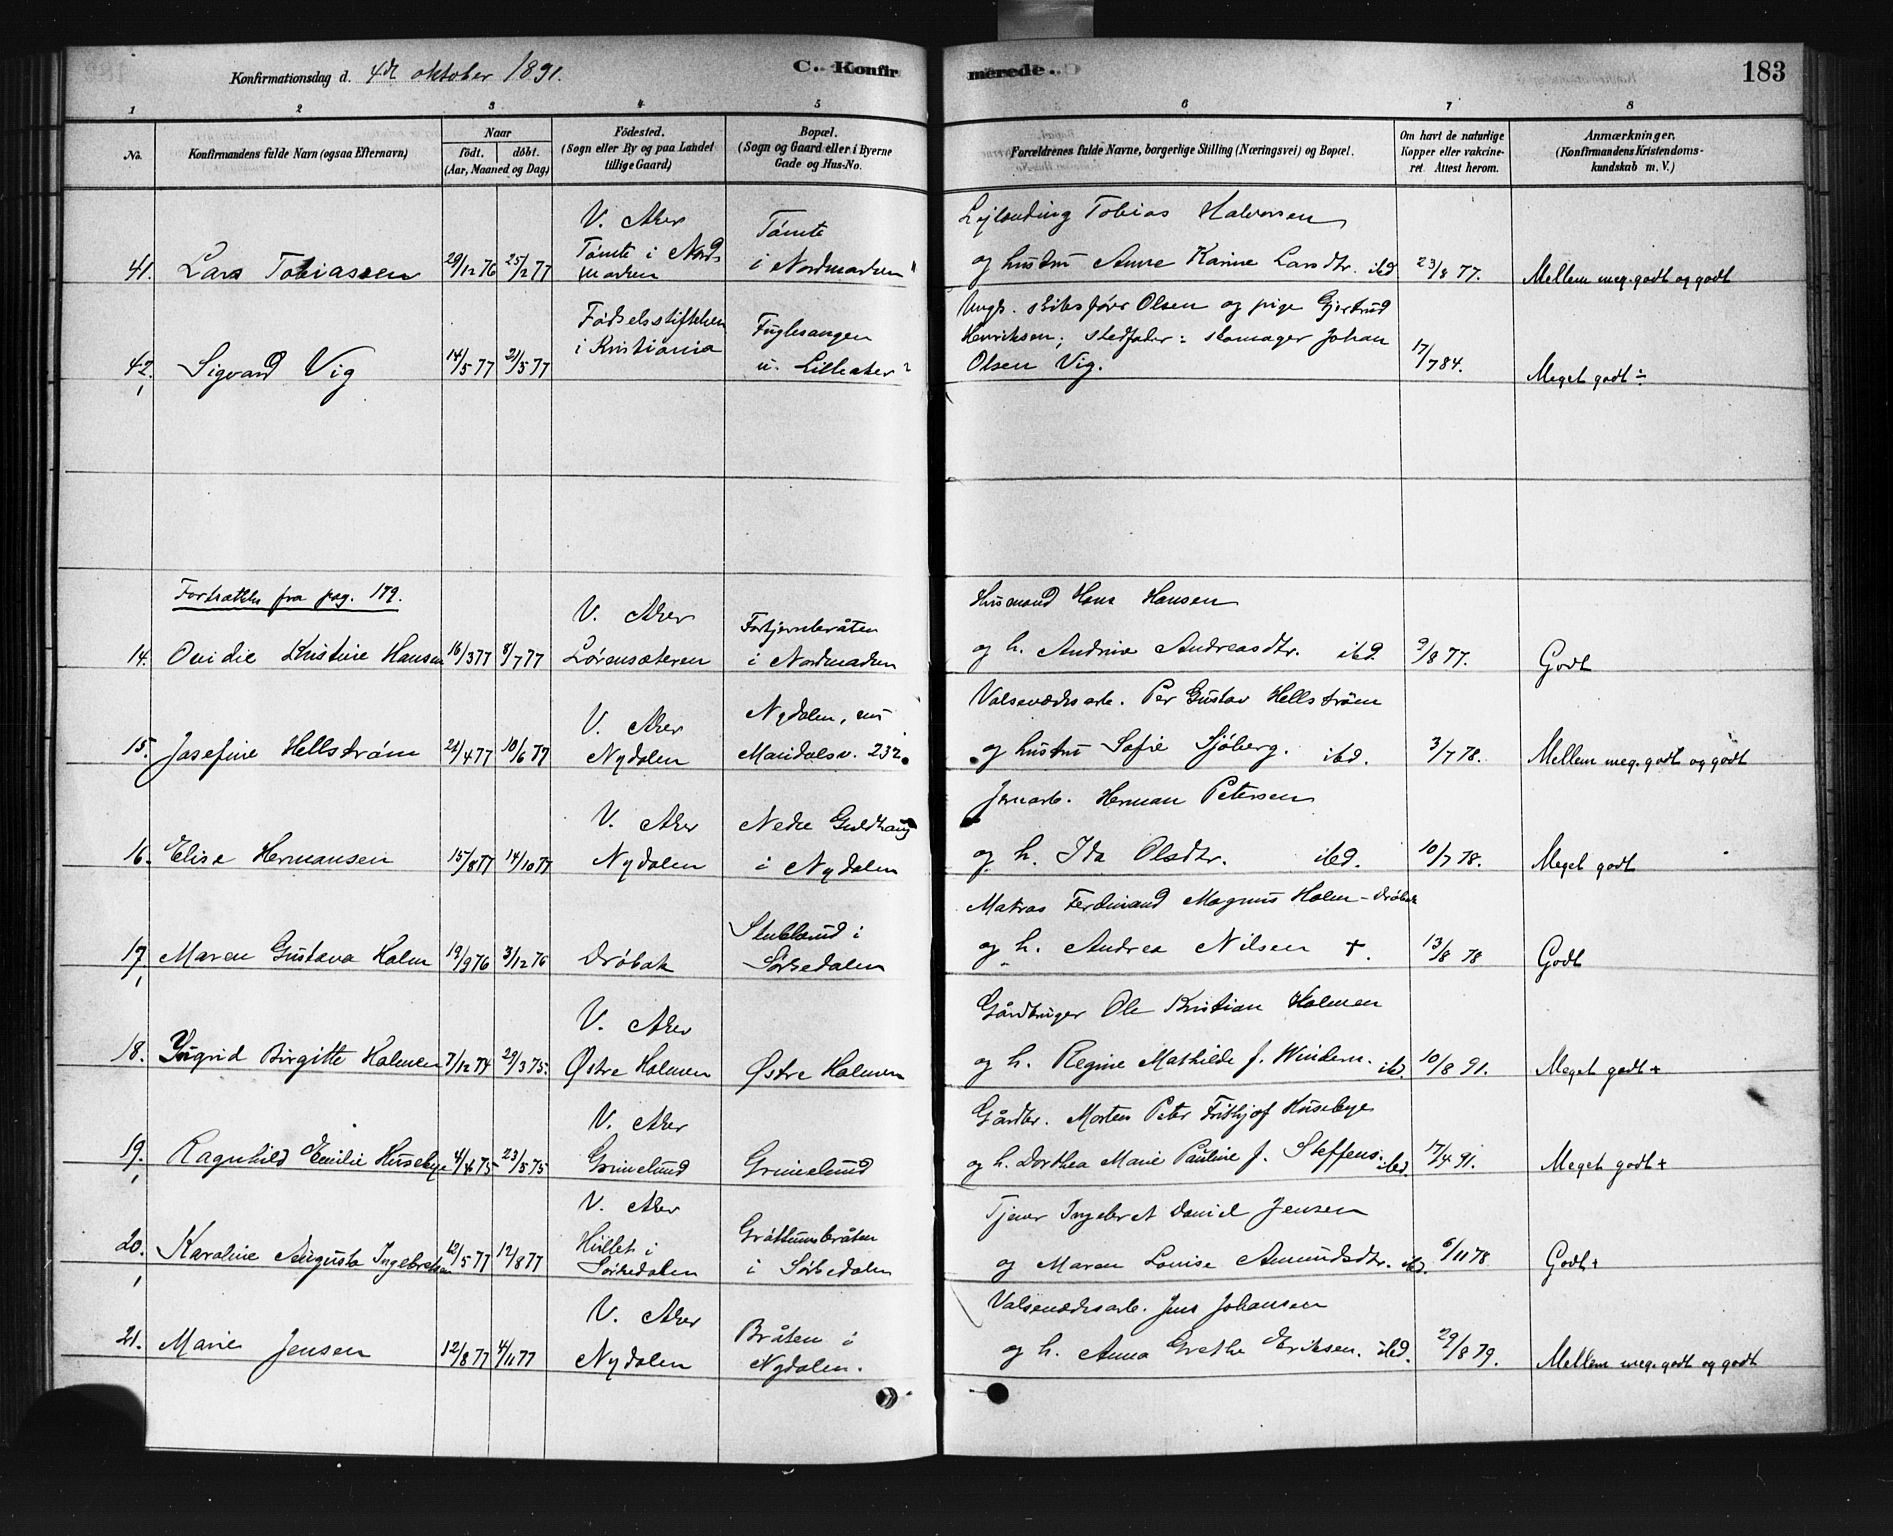 Konfirmationsdag d. 4de oktober 1891. C. Konfirmerede. 183
1 2 3 4 5 6 7 8
No. Konfirmandens fulde Navn (ogsaa Efternavn) Naar födt. döbt. (Aar, Maaned og Dag) Födested. (Sogn eller By og paa Landet tillige Gaard) Bopæl. (Sogn og Gaard eller i Byerne Gade og Hus-No. Forældrenes fulde Navne, borgerlige Stilling (Næringsvei) og Bopæl. Om havt de naturlige Kopper eller vakcineret Attest herom. Anmærkninger. (Konfirmandens Kristendomskundskab m. V.)
V. Aker Tømte Lejlending Tobias Halvorsen
41. Lars Tobiassen 29/12 76 25/2 77 Tømte i Nordmarken i Nordmarken og hustru Anne Karine Larsdtr. ibd 23/8 77. Mellem meg. godt og godt
Fødselsstiftelsen Fuglesangen Ungk. Olsen og pige Gjertrud
42. Sigvard Vig 14/5 77 21/5 77 i Kristiania u. Lilleaker Henriksen; stedfader: skomager Johan
Olsen Vig. 17/7 84. Meget godt ÷
Fortsættes fra pag. 179.
V. Aker Husmand Hans Hansen
14. Ovidie Kristine Hansen 16/3 77 8/7 77 Lørensæteren i Nordmarken og h. Andrine Andreasdtr. ibd. 9/8 77. Godt
V. Aker Nydalen, nu Valseværksarb. Per Gustav Hellstrøm
15. Josefine Hellstrøm 21/4 77 10/6 77 Nydalen Maridalsv. 232. og hustru Sofie Sjöberg. ibd. 3/7 78. Mellem meg. godt og godt
V. Aker Nedre Guldhaug Jernarb. Herman Petersen
16. Elise Hermansen 15/8 77 14/10 77 Nydalen i Nydalen og h. Ida Olsdtr. ibd. 10/7 78. Meget godt
Stubberud i Matros Ferdinand Magnus Holm - Drøbak
17. Maren Gustava Holm 19/9 76 3/12 76 Drøbak Sørkedalen og h. Andrea Nilsen †. 13/8 78 Godt
V. Aker Gårdbruger Ole Kristian Holmen
18. Yngrid Birgitte Holmen 7/12 74 29/3 75. Østre Holmen Østre Holmen og h. Regine Mathilde f. Windern. ibd. 10/8 91. Meget godt +
V. Aker Gårdbr. Morten Peter Frithjof Husebye
19. Ragnhild Emilie Husebye 4/4 75 23/5 75 Grimelund Grimelund og h. Dorthea Marie Pauline f. Steffens. ibd. 17/4 91. Meget godt +
V. Aker Tjener Ingebret Daniel Jensen
20. Karoline Augusta Ingebretsen 12/5 77 12/8 77 Hullet i Sørkedalen Gråttumsbråten i Sørkedalen og Maren Louise Amundsdtr. ibd. 6/11 78 Godt +
V. Aker Bråten i Valseværksarb. Jens Johansen
21. Marie Jensen 12/8 77 4/11 77 Nydalen Nydalen. og h. Anna Grethe Eriksen. ibd. 29/8 79. Mellem meg. godt og godt